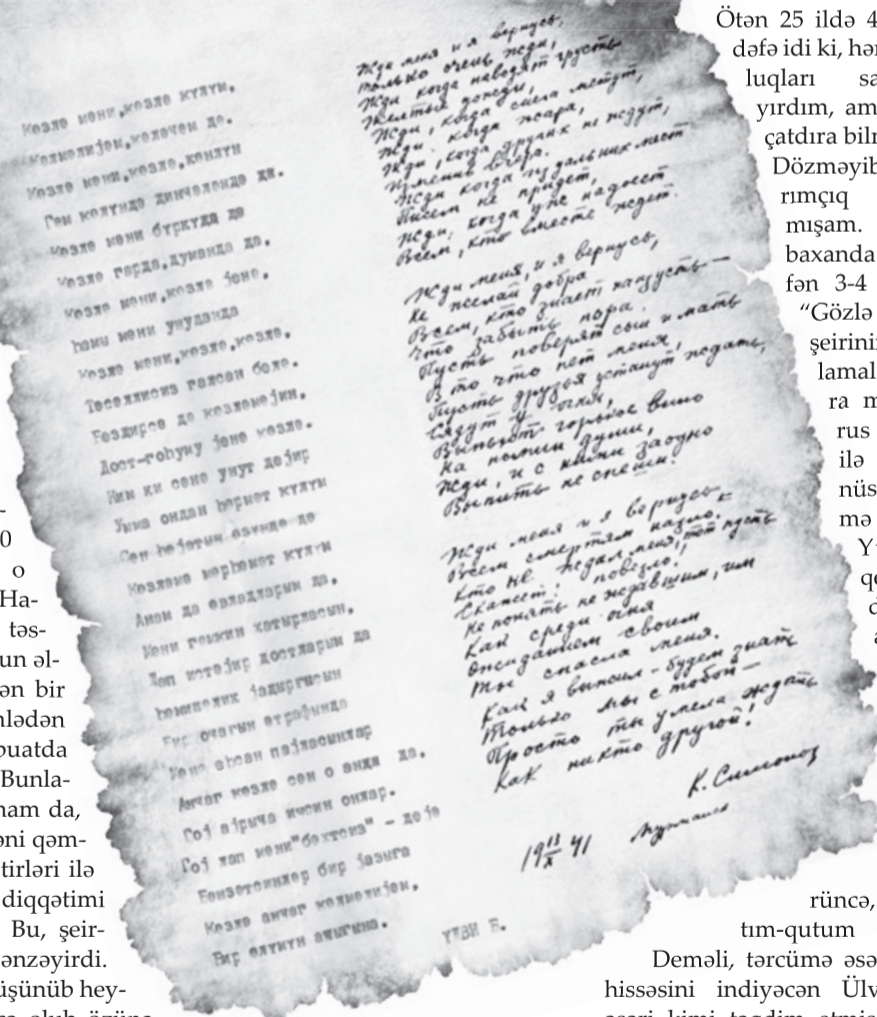 Көзлә мәни, көзлә күлүм,
Кәлмәлијәм, кәләчәм дә.
Көзлә мәни, көзлә, көнлүн
Гәм кәлүндә динчәләндә дә.
Көзлә мәни бүркүдә дә
Көзлә гарда, думанда да,
Көзлә мәни, көзлә јенә,
Һамы мәни унуданда
Көзлә мәни, көзлә, көзлә,
Тәсәллисиз галсан белә.
Бездирсә дә көзләмәјин,
Дост-гоһуму јенә көзлә.
Ким ки сәнә унут дејир
Ума ондан һөрмәт күлүм
Сән һәјатын өзүндә дә
Көзләмә мәрһәмәт күлүм
Анам да овладларым да,
Мәни гәмкин хатырласын,
Лап истәјир достларым да
Һәмишәлик јадыргасын
Бир очагын әтрафында
Мәнә еһсан пајласынлар
Анчаг көзлә сән о анда да.
Гој ајрыча ичсин онлар.
Гој лап мәни "бәхтсиз" - дејә
Бәнзәтсинләр бир јазыға
Көзлә анчаг кәлмәлијәм,
Бир өлүмүн ачығына.
ҮЛВИ Б.
Жди меня и я вернусь,
только очень жди,
Жди когда наводят грусть
Желтые дожди,
Жди, когда снега метут,
Жди когда жара,
Жди, когда других не ждут,
Изменив вчера.
Жди когда из дальних мест
Писем не придет,
Жди, когда уже надоест
Всем, кто вместе ждет.
Жди меня, и я вернусь,
Не желай добра
Всем, кто знает наизусть —
Что забыть пора.
Пусть поверят сын и мать
В то что нет меня,
Пусть друзья устанут ждать,
Сядут у огня,
Выпьют горькое вино
На помин души,
Жди, и с ними заодно
Выпить не спеши!
Жди меня и я вернусь
Всем смертям назло. —
Кто не ждал меня, тот пусть
Скажет: повезло!
Не понять не ждавшим, им
Как среди огня
Ожиданием своим
Ты спасла меня.
Как я выжил - будем знать
Только мы с тобой —
Просто ты умела ждать
Как никто другой!
К. Симонов
19 13/X 41 Мурманск
Ötən 25 ildə 4
dəfə idi ki, hər
luqları sa
yırdım, am
çatdıra biln
Dözməyib
rımçıq
mışam.
baxanda
fən 3-4
“Gözlə
şeirini
lamal
ra m
rus
ilə
nüs
mə
Y
qe
d
a
0
o
Ha-
təs-
un əl-
ən bir
nlədən
buatda
Bunla-
nam da,
əni qəm-
tirləri ilə
diqqətimi
Bu, şeir-
ənzəyirdi.
üşünüb hey-
rüncə,
tım-qutum
Deməli, tərcümə əsə
hissəsini indiyəcən Ülv